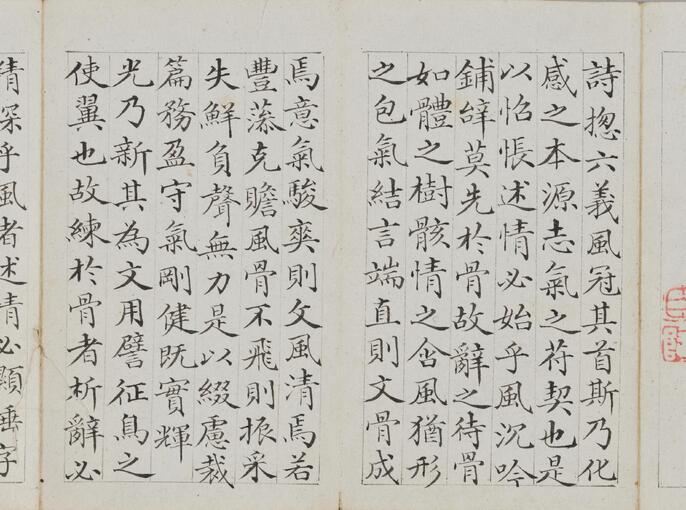 詩揔六義風冠其首斯乃化
感之本源志氣之苻契也是
以怊悵述情必始乎風沉吟
鋪辝莫先於骨故辭之待骨
如體之樹骸情之含風猶形
之包氣結言端直則文骨成
焉意氣駿奭則文風清焉若
豐藻克贍風骨不飛則振采
失鮮負聲無力是以綴慮裁
篇務盈守氣剛健既實輝
光乃新其為文用譬征鳥之
使翼也故練於骨者析辭必
精深乎風者述情必顯捶字